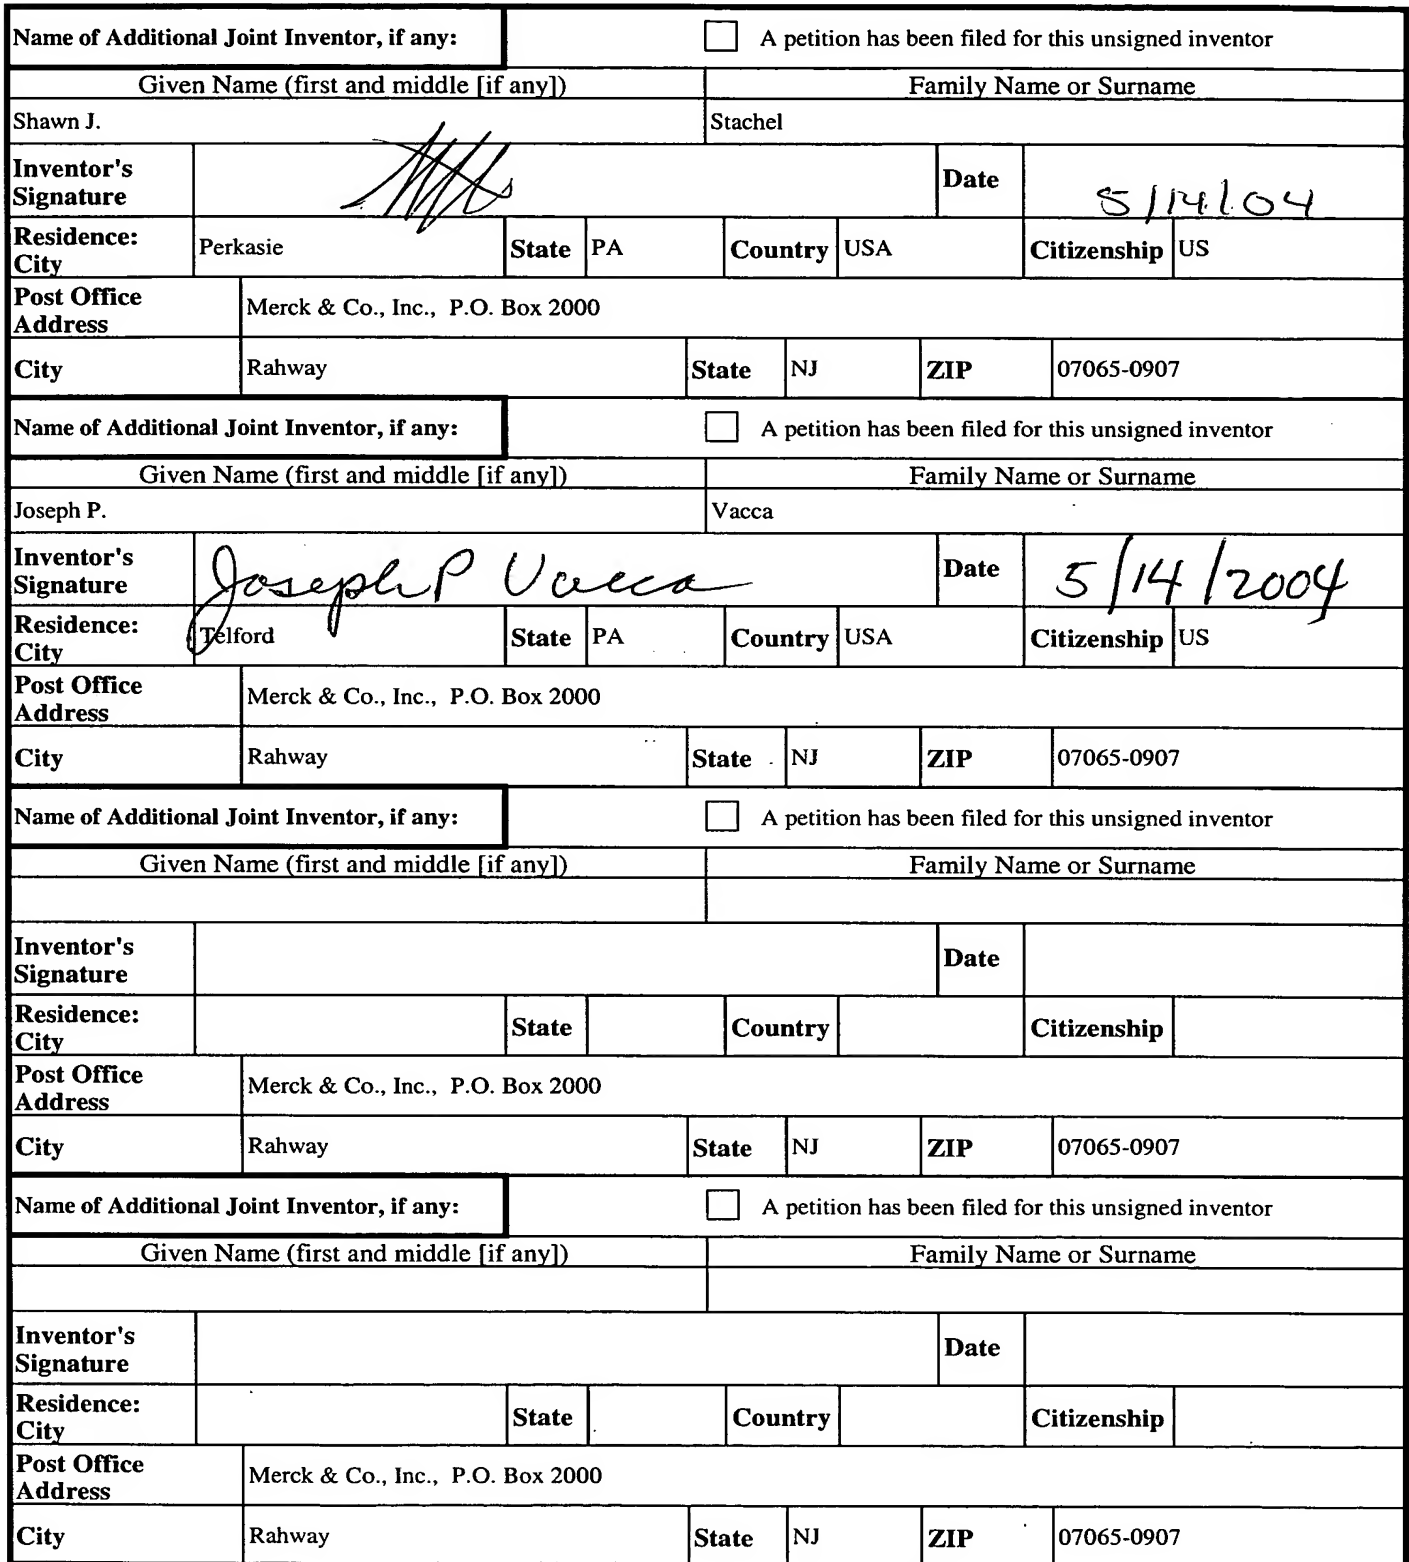 Name of Additional Joint Inventor, if any: A petition has been filed for this unsigned inventor
Given Name (first and middle [if any]) Family Name or Surname
Shawn J. Stachel
Inventor's Signature Date 5/14/04
Residence: City Perkasie State PA Country USA Citizenship US
Post Office Address Merck & Co., Inc., P.O. Box 2000
City Rahway State NJ ZIP 07065-0907
Name of Additional Joint Inventor, if any: A petition has been filed for this unsigned inventor
Given Name (first and middle [if any]) Family Name or Surname
Joseph P. Vacca
Inventor's Signature Joseph P Vacca Date 5/14/2004
Residence: City Telford State PA Country USA Citizenship US
Post Office Address Merck & Co., Inc., P.O. Box 2000
City Rahway State NJ ZIP 07065-0907
Name of Additional Joint Inventor, if any: A petition has been filed for this unsigned inventor
Given Name (first and middle [if any]) Family Name or Surname
Inventor's Signature Date
Residence: City State Country Citizenship
Post Office Address Merck & Co., Inc., P.O. Box 2000
City Rahway State NJ ZIP 07065-0907
Name of Additional Joint Inventor, if any: A petition has been filed for this unsigned inventor
Given Name (first and middle [if any]) Family Name or Surname
Inventor's Signature Date
Residence: City State Country Citizenship
Post Office Address Merck & Co., Inc., P.O. Box 2000
City Rahway State NJ ZIP 07065-0907